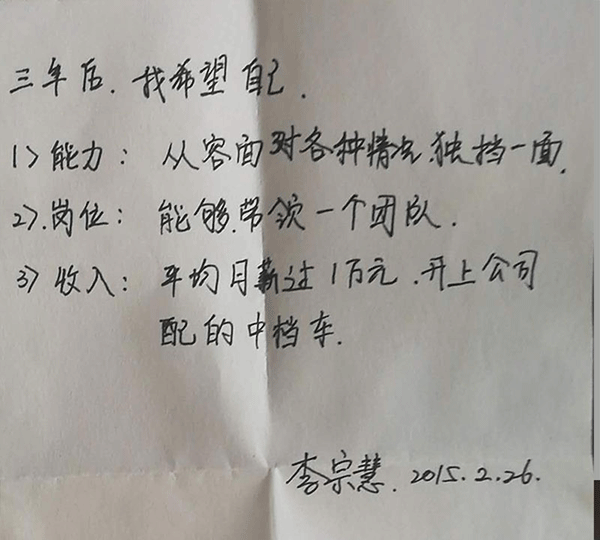 三年后.我希望自己.
1>能力：从容面对各种情况.独挡一面.
2>.岗位：能够.带领一个团队.
3>收入：平均月薪过1万元.开上公司
配的中档车.
李宗慧.2015.2.26.